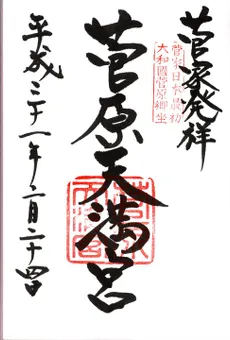 菅家発祥
菅家日本最初
大和國菅原郷坐
菅原天満宮
平成二十一年二月二十四日